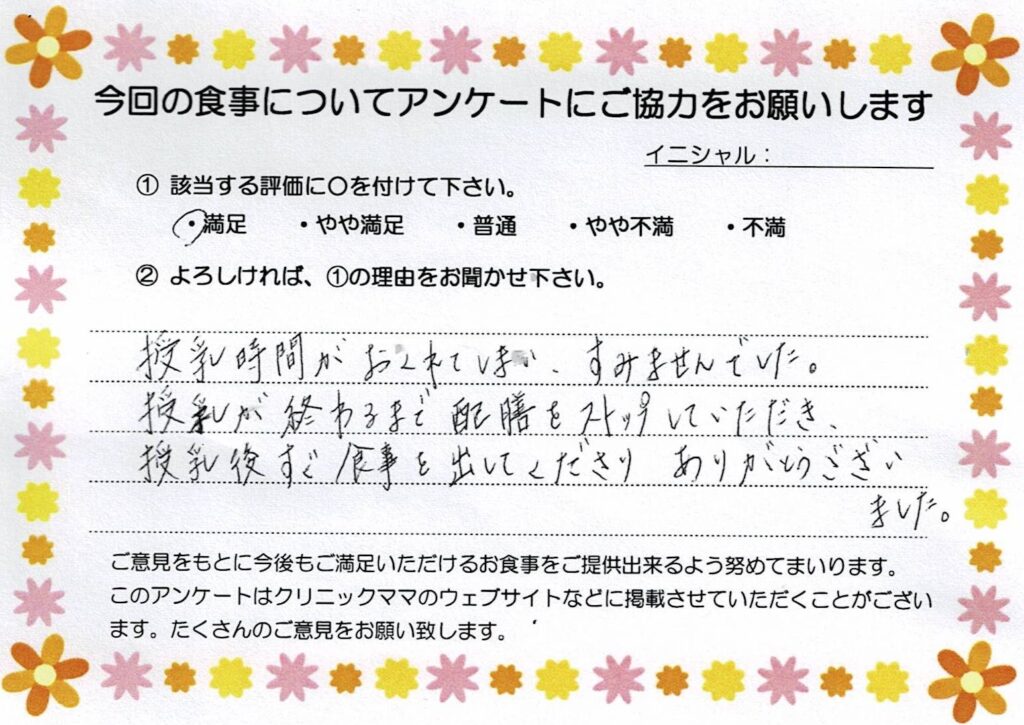 今回の食事についてアンケートにご協力をお願いします
イニシャル：
① 該当する評価に〇を付けて下さい。
・満足 ・やや満足 ・普通 ・やや不満 ・不満
② よろしければ、①の理由をお聞かせ下さい。
授乳時間がおくれてしまい、すみませんでした。
授乳が終わるまで配膳をストップしていただき、
授乳後すぐ食事を出してくださり ありがとうござい
ました。
ご意見をもとに今後もご満足いただけるお食事をご提供出来るよう努めてまいります。
このアンケートはクリニックママのウェブサイトなどに掲載させていただくことがござい
ます。たくさんのご意見をお願い致します。